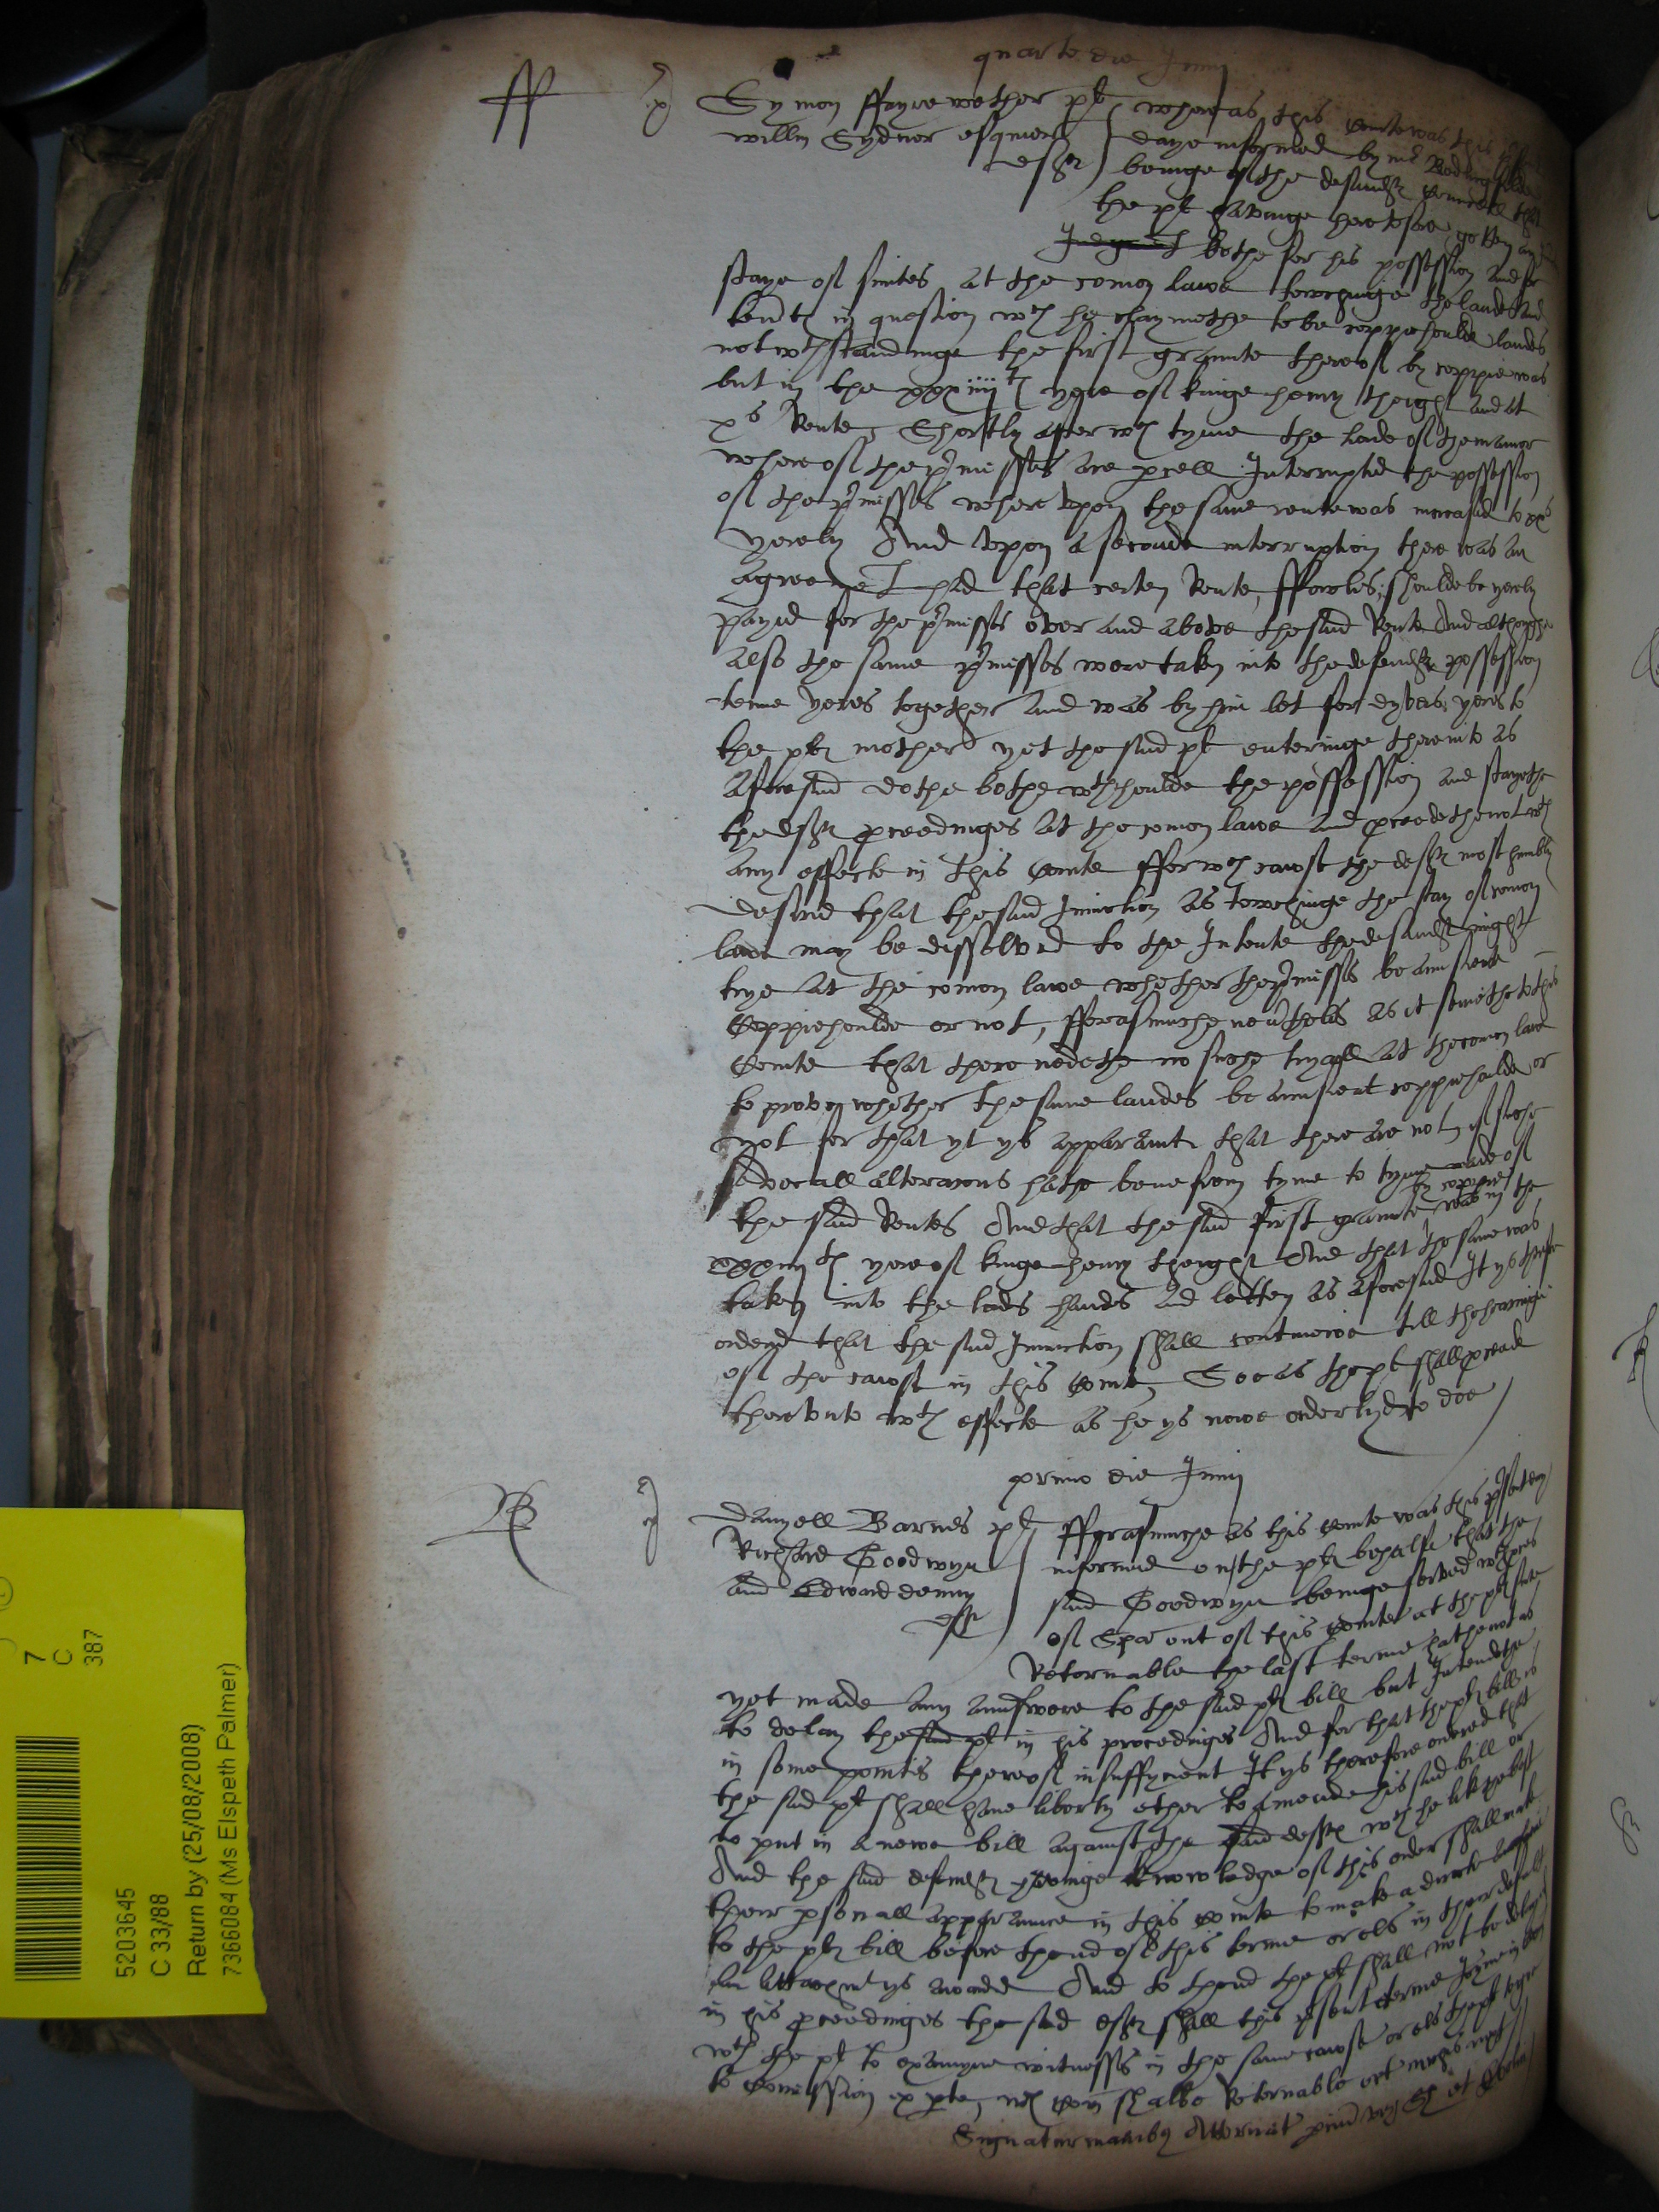 quarto die Junij
ff
Symon ffayrewether plt whereas this Courte was this
willm Sydnor esquier daye informed by mr Bedingfelde
deft beinge of the defendts councell that
the plt havinge heretofore gotten an
bothe for his possession and for
staye of suites at the comon lawe towchinge the landes and
tents in question wch he claymethe to be coppiehoulde landes
notwthstandinge the first graunte thereof by coppie was
but in the xxxiiijth yere of kinge henry theight and at
xs Rente, Shortly after wch tyme the lorde of the manor
whereof the pmisses are pcell Interrupted the possession
of the pmisses where upon the same rente was increased to xxs
yerely And upon a seconde interruption there was an
agreemt had that certen Rente, shoulde be yerely
payed for the pmisses over and above the said Rente And althoughe
also the same pmisses were taken into the defendts possession
tenne yeres together and was by him let for dyvers yeres to
the plts mother yet the said plt enteringe thereinto as
aforesaid dothe bothe wthhoulde the possession and stayethe
the defts pceedinges at the comon lawe and pceedethe not wth
any effecte in this Courte ffor wch cawse the deft most humbly
desired that the said Iniunction as towchinge the stay of comon
lawe may be dissolved to the Intente the defendt might
trye at the comon lawe whether the pmisses be auncient
Coppiehoulde or not, fforasmuche nevtheles as it semethe to this
Courte that there nedethe no suche tryall at the comon lawe
to prove whether the same landes be auncient coppiehoulde or
not for that yt ys apparaunte that there are not of suche
severall alteracons hathe bene from tyme to tyme made of
the said Rentes And that the said first graunte by coppie was in the
xxxiiijth yere of kinge henry theight And that the same was
taken into the lords handes and letten as aforesaid It ys therefore
ordered that the said Iniunction shall contineue till the hearinge
of the cawse in this Courte, Soe as the plt shall pceade
thereunto wth effecte as he ys nowe orderlyd to doe
primo die Junij
B
Danyell Barnes plt fforasmuche as this Courte was this psent day
Richard Goodwyn informed on the plts behalfe that the
and Edward denny said Goodwyn beinge served wth pces
deft of Spa out of this Courte at the plts sute
Retornable the last terme hathe not as
yet made any aunswere to the said plts bill but Intendethe
to delay the said plt in his procedinges And for that the plts bill is
in some pointes thereof insuffycient It ys therefore ordered that
the said plt shall have liberty ether to amende his said bill or
to put in a newe bill against the said defts wch he likethe best
And the said defendts havinge knowledge of this order shall make
their psonall apparaunce in this Courte to make a direct aunswere
to the plts bill before thend of this terme or els in their default
an attachmt ys awarded And to thend the plt shall not be delayed
in his pceedinges the said defts shall this psent terme Joyne in
wth the plt to examyne witnesses in the same cawse or els the plt
to Comission ex pte, wch Com shalbe Retornable oct
5203645
C 33/88
Return by (25/08/2008)
7366084 (Ms Elspeth Palmer)
7
C
387